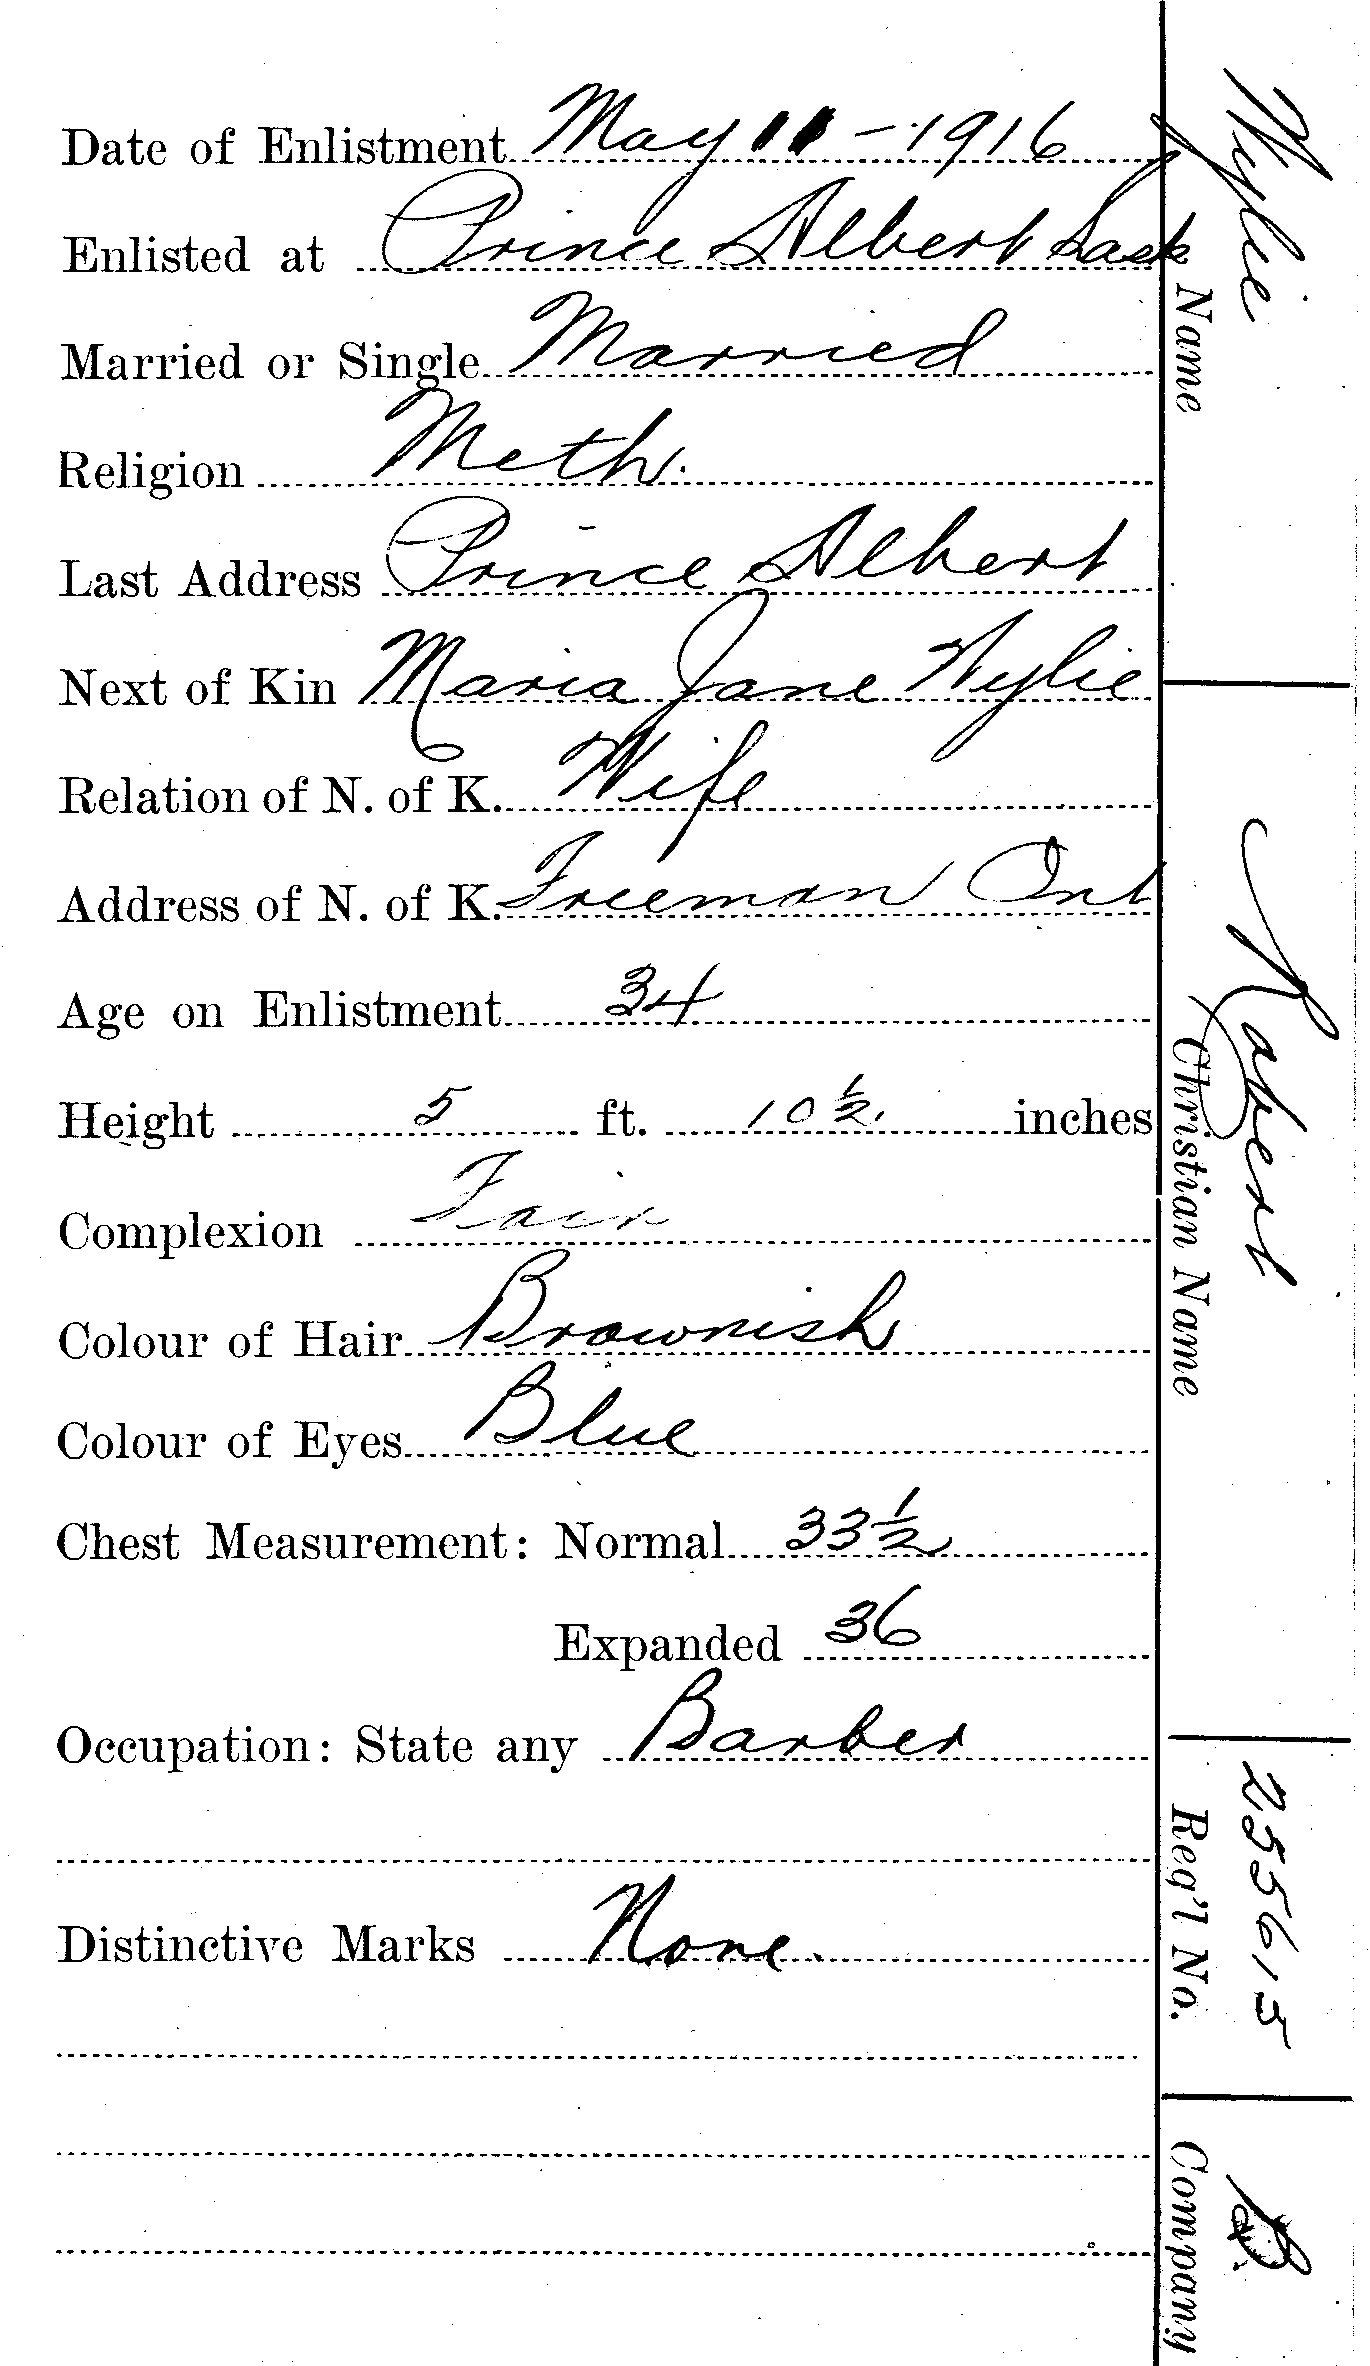 Date of Enlistment May 11 - 1916
Enlisted at Prince Albert Sask
Married or Single Married
Religion Meth.
Last Address Prince Albert
Next of Kin Maria Jane Wylie
Relation of N. of K. Wife
Address of N. of K. Freeman Ont
Age on Enlistment 34
Height 5 ft. 10 ½ inches
Complexion Fair
Colour of Hair Brownish
Colour of Eyes Blue
Chest Measurement: Normal 33 ½
Expanded 36
Occupation: State any Barber
Distinctive Marks None.
Wylie
Name
Robert
Christian Name
255615
Reg'l No.
Company